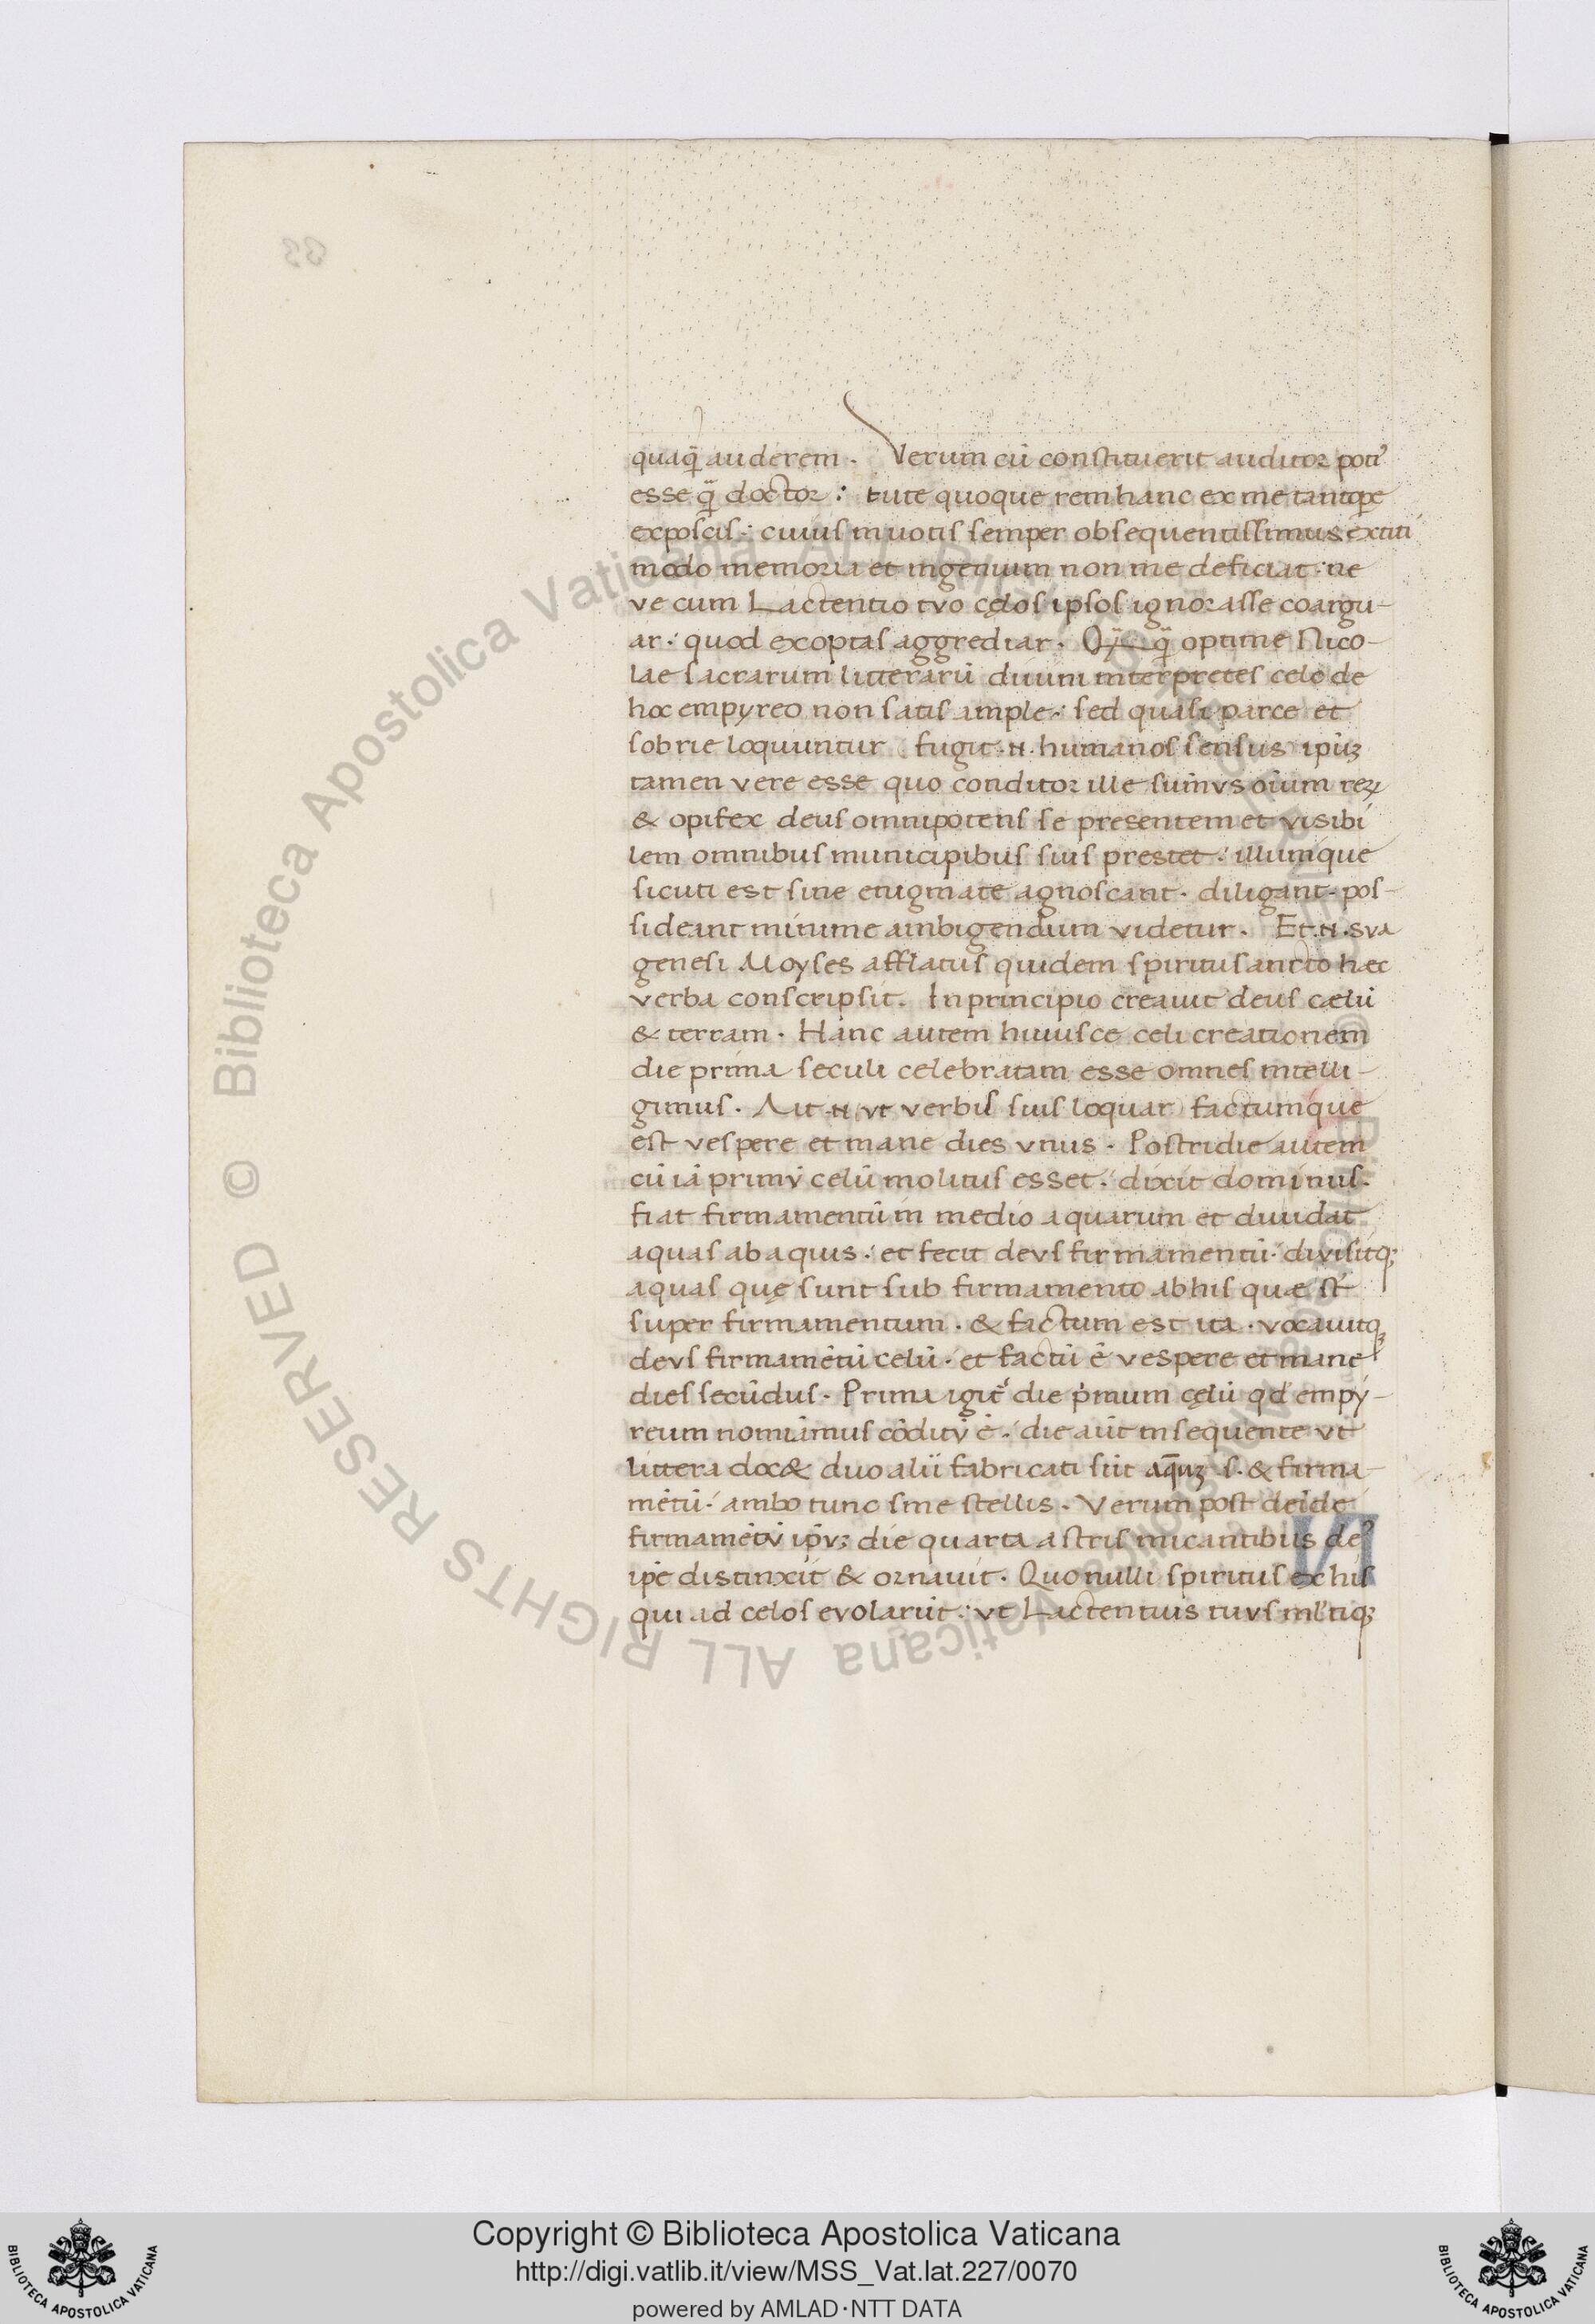 quaq̃ auderem. Verum cũ constituerit auditor poti⁹
esse q̃ doctor: tute quoque rem hanc ex me tantoꝑe
exposcis: cuius in uotis semper obsequentissimus extiti
modo memoria et ingenium non me deficiat: ne
ve cum Lactentio tvo cęlos ipsos ignorasse coargu-
ar: quod exoptas aggrediar. Q̃q̃ optime Nico-
lae sacrarum litterarũ diuini interpretes celo de
hoc empyreo non satis ample: sed quasi parce et
sobrie loquuntur (fugit .n. humanos sensus) ipũꝫ
tamen vere esse quo conditor ille sum̃vs oĩum reꝝ
& opifex deus omnipotens se presentem et visibi
lem omnibus municipibus suis prestet: illumque
sicuti est sine enigmate agnoscant. diligant. pos-
sideant minime ambigendum videtur. Et .n. sva
genesi Moyses afflatus quidem spiritu sancto hæc
verba conscripsit. In principio creauit deus cælũ
& terram. Hanc autem huiusce celi creationem
die prima seculi celebratam esse omnes intelli-
gimus. Ait .n. (vt verbis suis loquar) factumque
est vespere et mane dies vnus. Postridie autem
cũ iã primṽ celũ molitus esset: dixit dominus.
fiat firmamentũ in medio aquarum et diuidat
aquas ab aquis: et fecit devs firmamentũ. divisitqꝫ
aquas quę sunt sub firmamento ab his quæ st̃
super firmamentum. & factum est ita. vocauitqꝫ
devs firmamẽtũ celũ. et factũ ẽ vespere et mane
dies secũdus. Prima igit̃ die primum cęlũ qd̃ empy-
reum nomiãmus cõditṽ ẽ: die aũt insequente vt
littera doc& duo alii fabricati sũt aq̃uꝫ s. & firma-
mẽtũ: ambo tunc sine stellis. Verum post deide
firmamẽtṽ ip̃vꝫ die quarta astris micantibus de⁹
ip̃e distinxit & ornauit. Quo nulli spiritus ex his
qui ad celos evolarũt: vt Lactentius tuvs ml̃tiqꝫ
Copyright © Biblioteca Apostolica Vaticana
http://digi.vatlib.it/view/MSS_Vat.lat.227/0070
powered by AMLAD·NTT DATA
Biblioteca Apostolica Vaticana
© Biblioteca Apostolica Vaticana ALL RIGHTS RESERVED
BIBLIOTECA APOSTOLICA VATICANA
BIBLIOTECA APOSTOLICA VATICANA